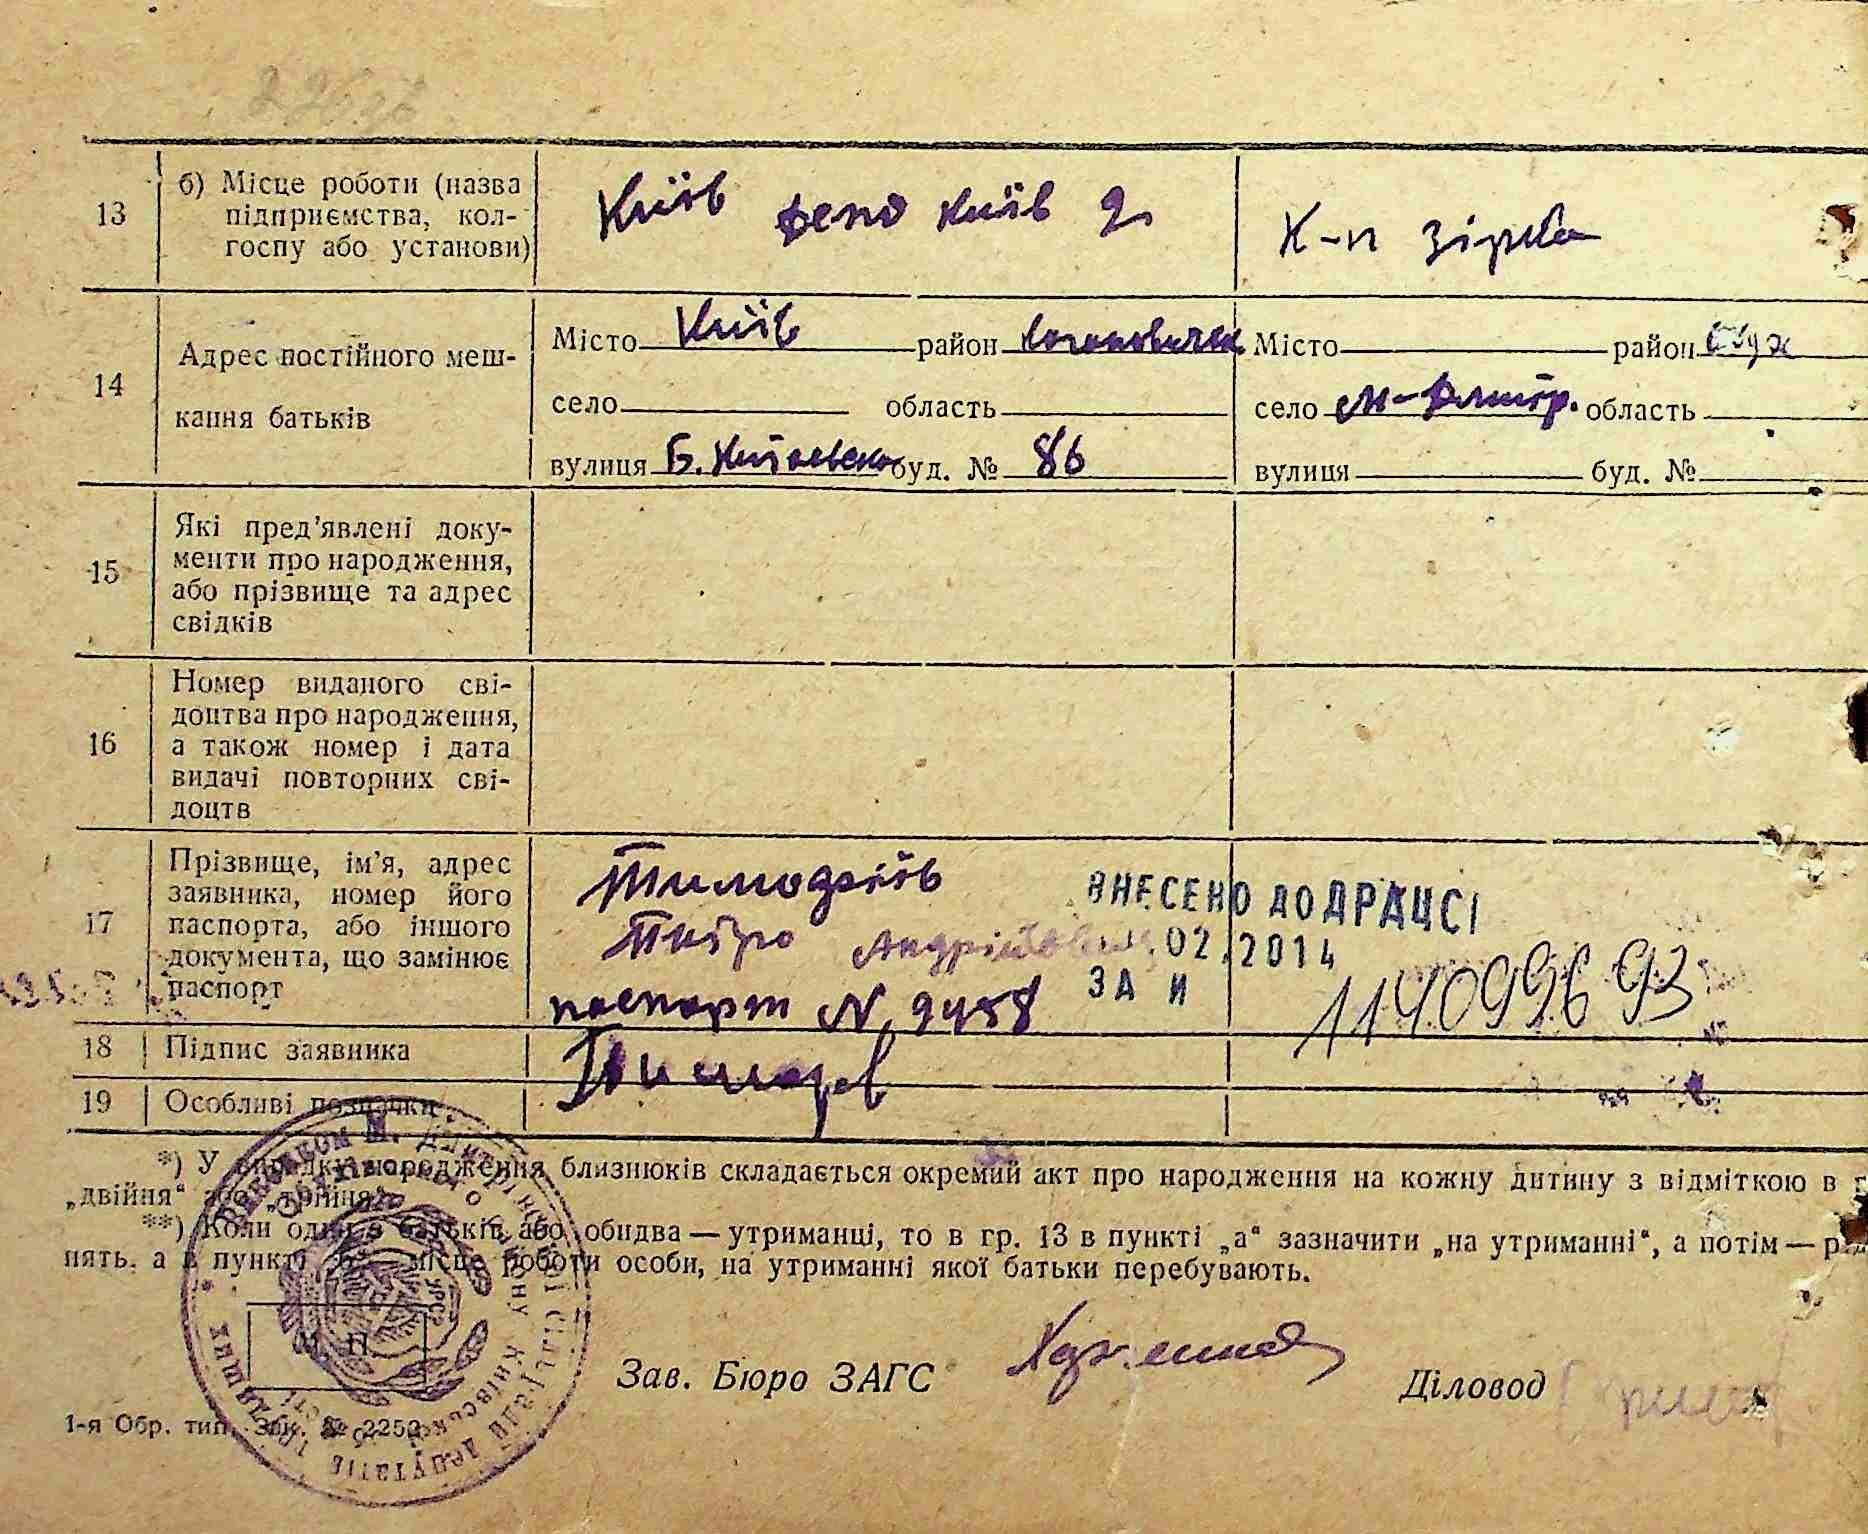 13
б) Місце роботи (назва
підприємства, кол-
госпу або установи)
Київ депо Київ 2
К-п Зірка
14
Адрес постійного меш-
кання батьків
Місто Київ район
село область
вулиця Б. Китаевска буд. № 86
Місто район
село М-Дмитр. область
вулиця буд. №
15
Які пред'явлені доку-
менти про народження,
або прізвище та адрес
свідків
16
Номер виданого сві-
доцтва про народження,
а також номер і дата
видачі повторних сві-
доцтв
17
Прізвище, ім'я, адрес
заявника, номер його
паспорта, або іншого
документа, що замінює
паспорт
Тимофіїв
Петро Андрійович
паспорт N 9458
ВНЕСЕНО ДО ДРАЦСІ
.02.2014
ЗА И
11409969З
18
Підпис заявника
19
Особливі позначки
*) У випадку народження близнюків складається окремий акт про народження на кожну дитину з відміткою в
„двійня“ або „трійня“
**) Коли один з батьків або обидва — утриманці, то в гр. 13 в пункті „а“ зазначити „на утриманні“, а потім —
нять, а в пункті „б“ місце роботи особи, на утриманні якої батьки перебувають.
М. П.
УРСР
Зав. Бюро ЗАГС
Діловод
1-я Обр. тип. Зак. № 2252